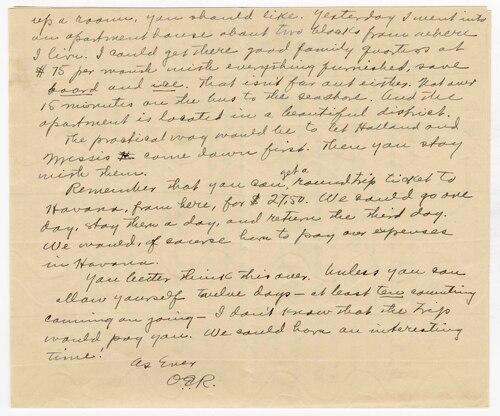 up a room, you should like. Yesterday I went into
an apartment house about two blocks from where
I live. I could get there good family quarters at
$75 per month with everything furnished, save
board and ice. That isn't far out either. Not over
15 minutes on the bus to the seashore. And the
apartment is located in a beautiful district.
The practical way would be to let Holland and
Missis come down first. Then you stay
with them.
Remember that you can get a round trip ticket to
Havana, from here, for $27.50. We could go one
day, stay then a day, and return the third day.
We would, of course have to pay our expenses
in Havana.
You better think this over. Unless you can
allow yourself twelve days – at least ten counting
coming an going – I don't know that the trip
would pay you. We could have an interesting
time!
As Ever
O.E.R.